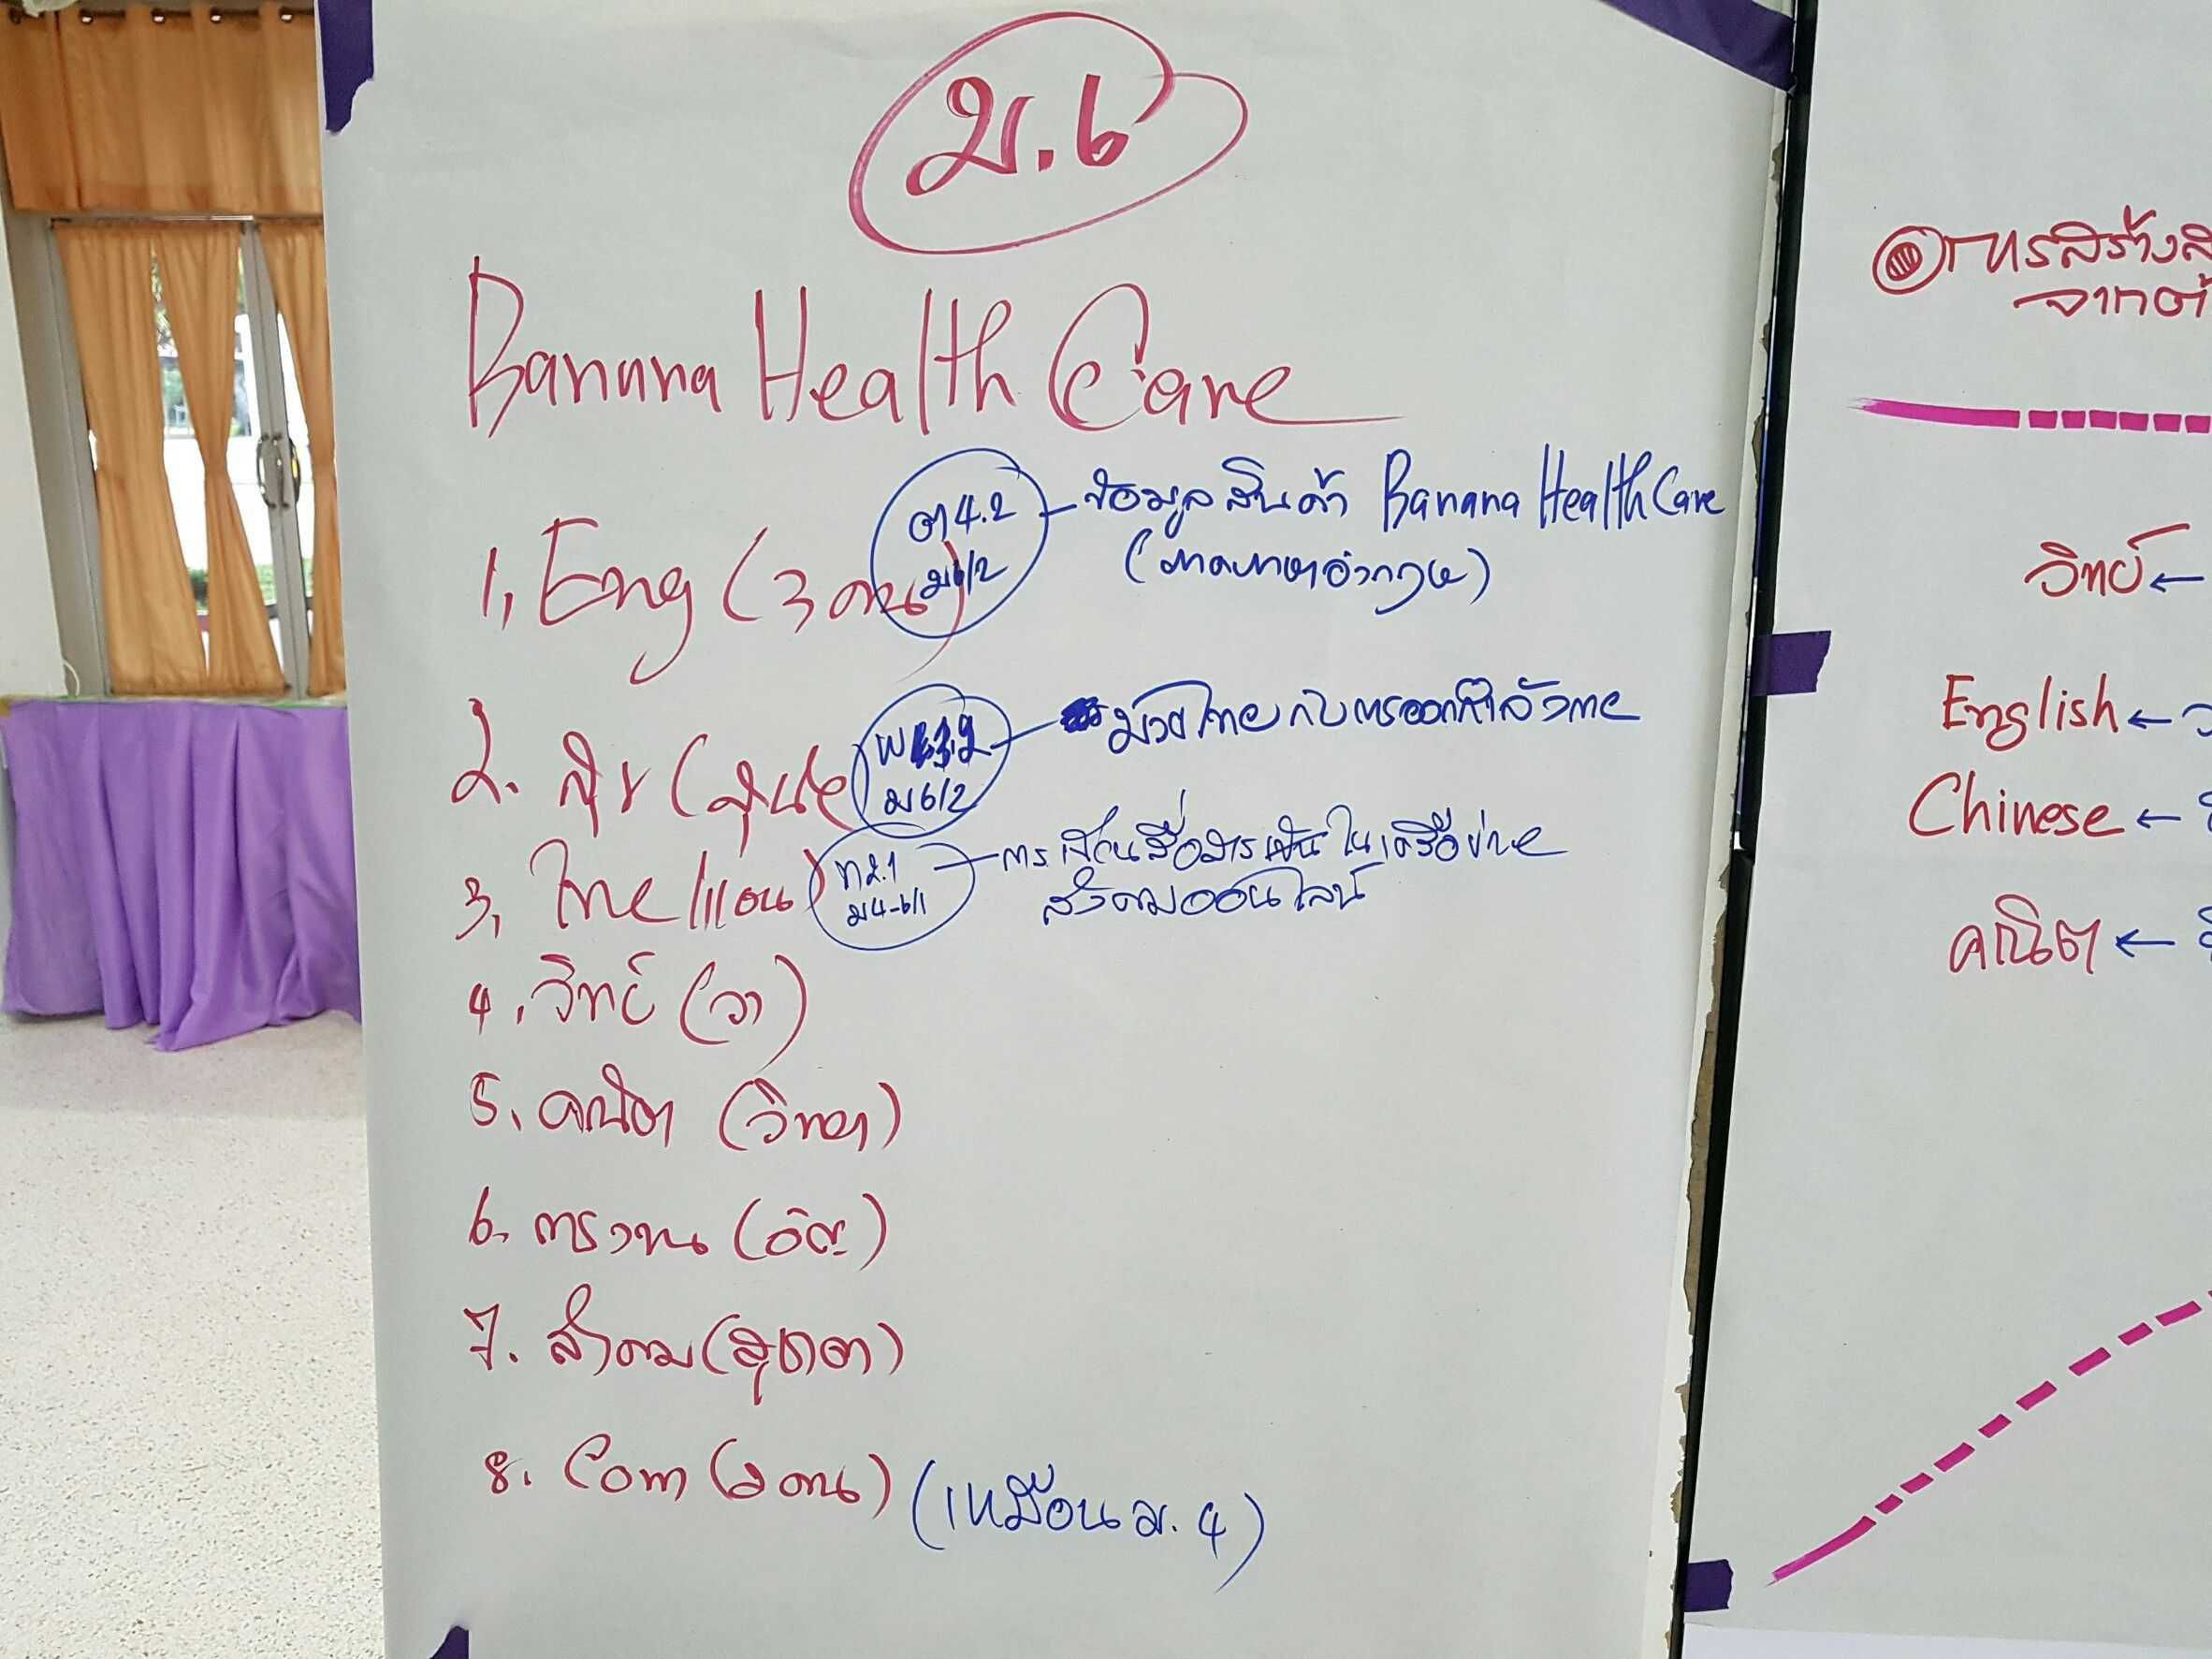 ม.6
Banana Health Care
1, Eng (3 คน)
ต 4.2
ม6/2
ข้อมูลสินค้า Banana Health Care
(ภาคภาษาอังกฤษ)
2. สุข (
พ 3.2
ม6/2
มวยไทยกับการออกกำลังกาย
3, ไทย
ท 2.1
ม4-6/1
การเขียนสื่อสาร ในเครือข่าย
สังคมออนไลน์
4. วิทย์ (วา)
5. คณิต (วิทยา)
6. การงาน
7. สังคม (สุชาดา)
8. Com (2 คน) (เหมือน ม. 4)
การสร้างสิ
จากต้
วิทย์ ←
English ←
Chinese ←
คณิต ←